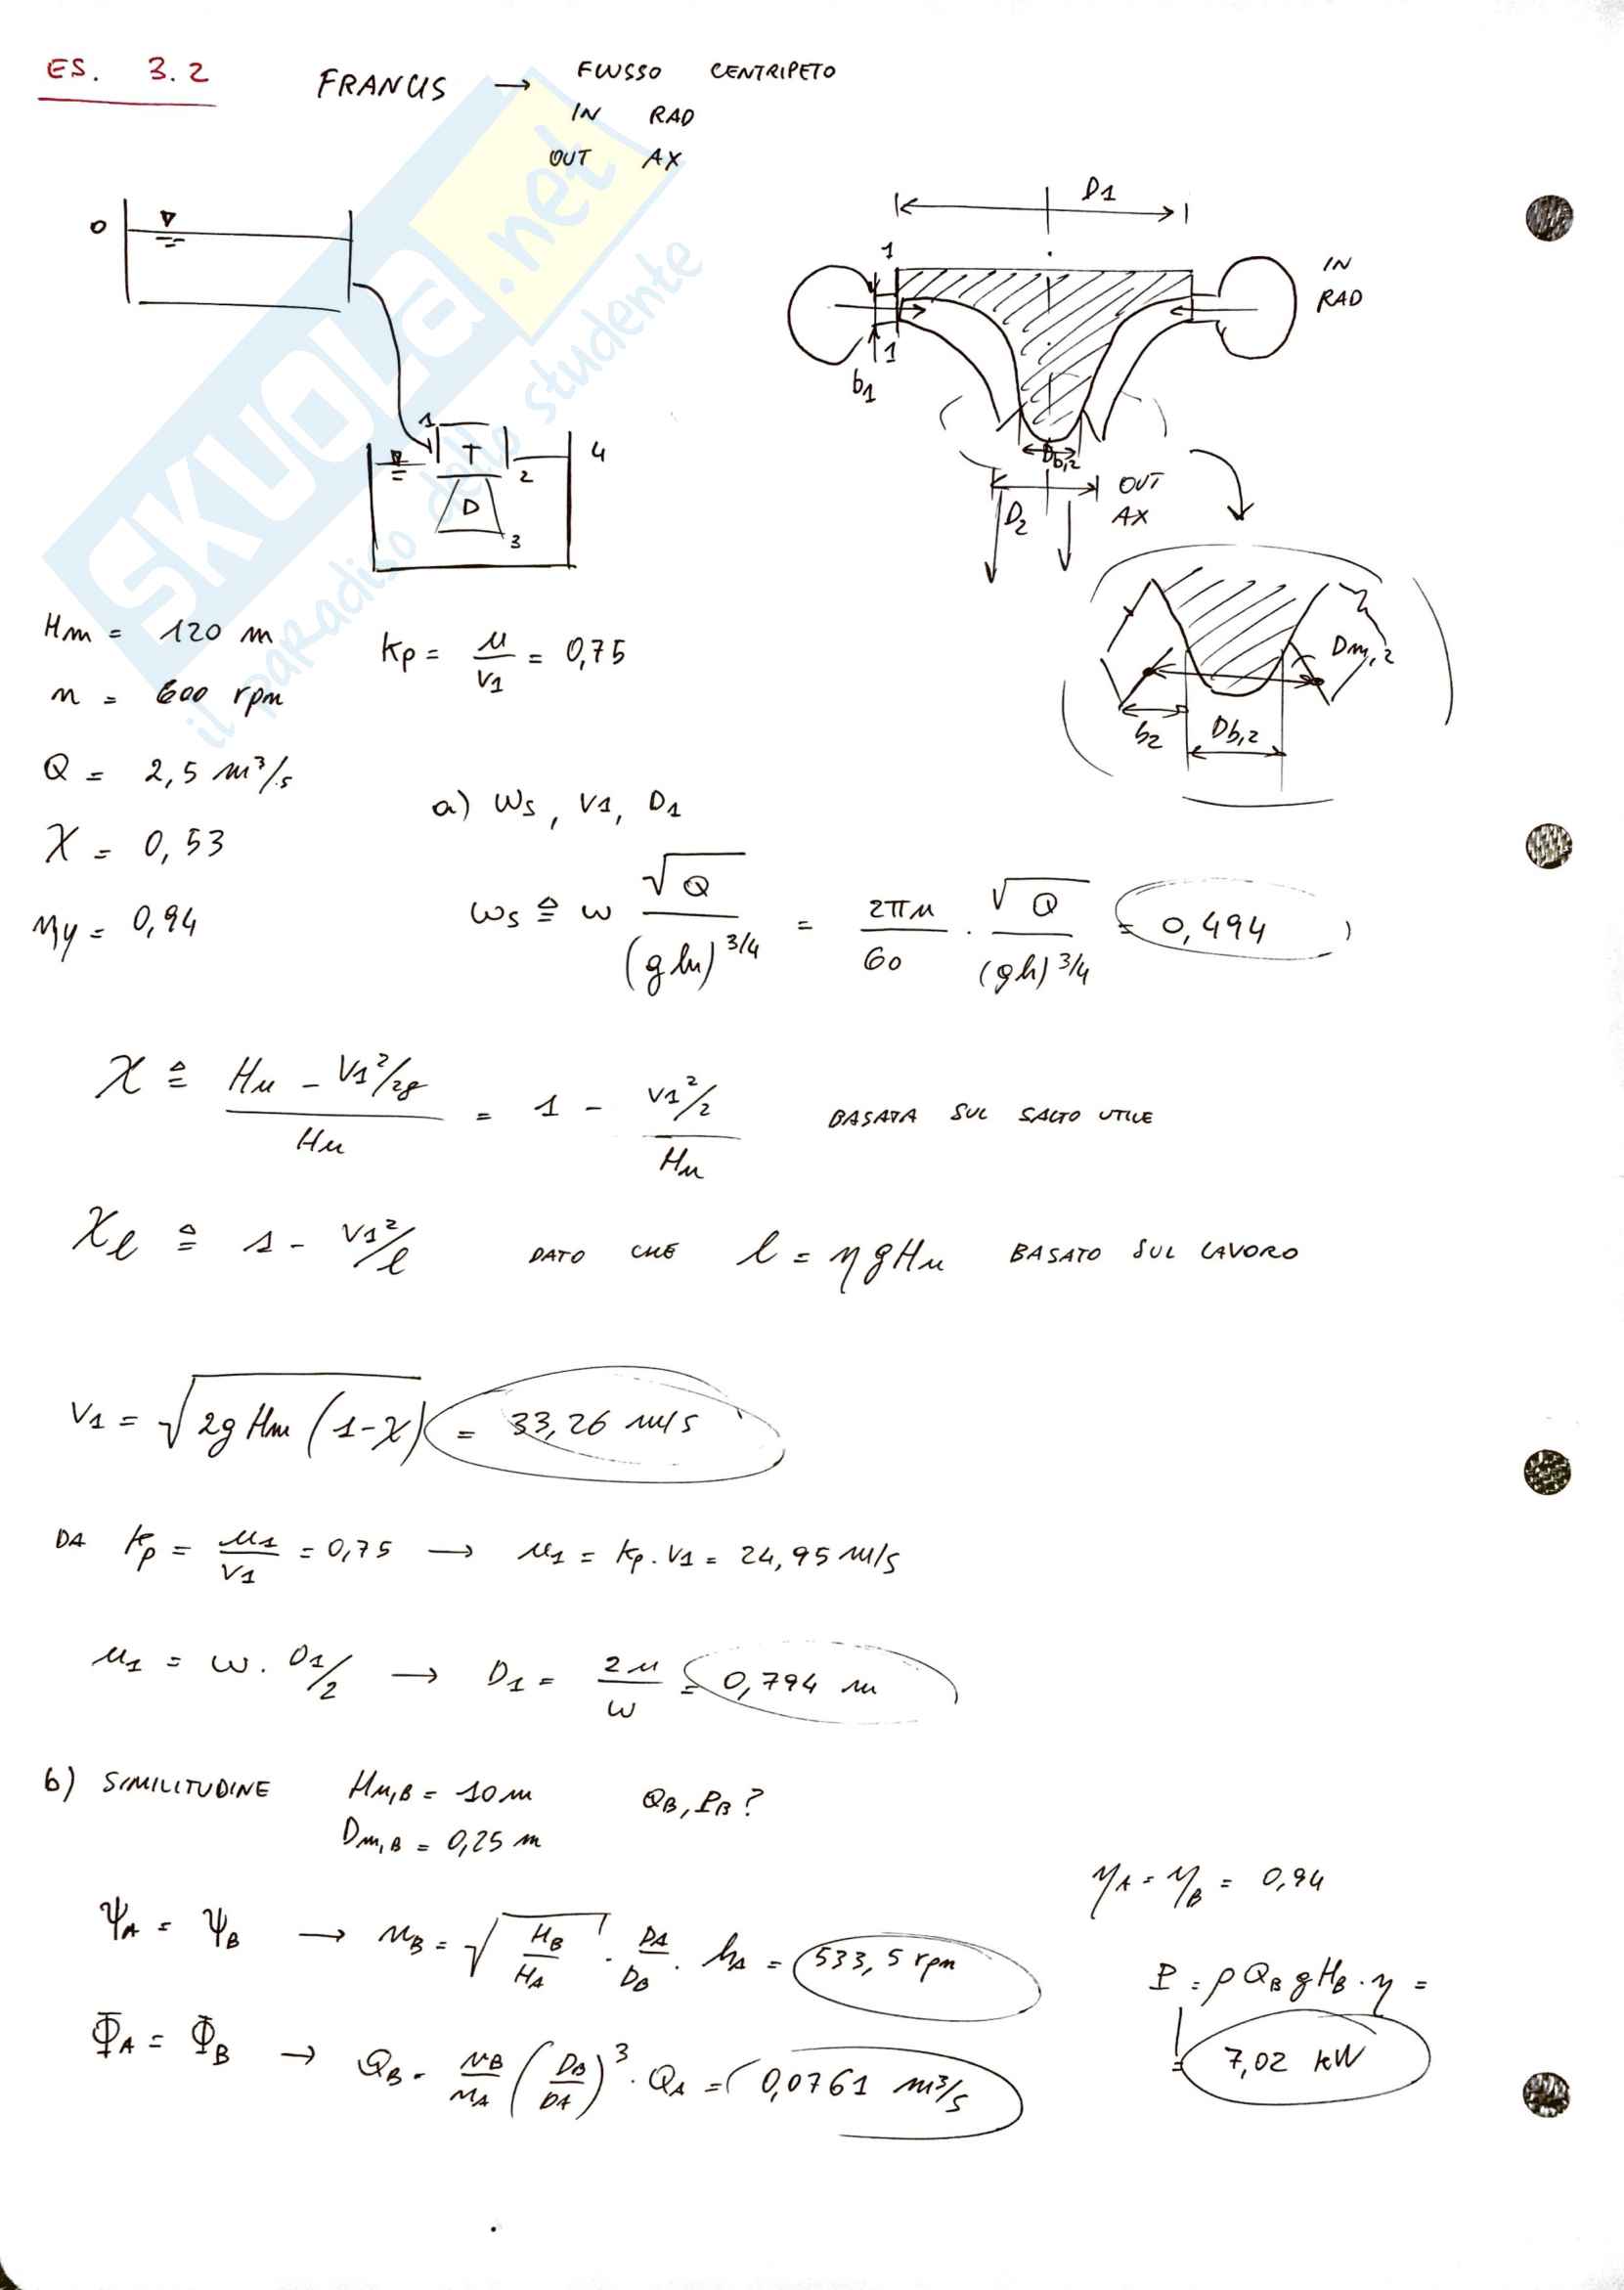 ES. 3.2
FRANCIS → FLUSSO CENTRIPETO
IN RAD
OUT AX
0
1
T
2
D
3
4
D1
1
1
b1
IN
RAD
Db,2
D2
OUT
AX
Dm,2
b2
Db,2
Hm = 120 m
n = 600 rpm
Q = 2,5 m³/s
χ = 0,53
ηy = 0,94
kp = u/v1 = 0,75
a) ωs, V1, D1
ωs ≙ ω √Q/(g hm)^3/4 = 2πn/60 · √Q/(gh)^3/4 = 0,494
χ ≙ (Hm - V1²/2g)/Hm = 1 - (V1²/2)/Hm BASATA SUL SALTO UTILE
χℓ ≙ 1 - V1²/ℓ DATO CHE ℓ = η g Hm BASATO SUL LAVORO
V1 = √2g Hm (1-χ) = 33,26 m/s
DA kp = u1/V1 = 0,75 → u1 = kp · V1 = 24,95 m/s
u1 = ω · D1/2 → D1 = 2u/ω = 0,794 m
b) SIMILITUDINE Hm,B = 10 m QB, PB ?
Dm,B = 0,25 m
ηA = ηB = 0,94
ψA = ψB → nB = √HB/HA · DA/DB · nA = 533,5 rpm
P = ρ QB g HB · η =
= 7,02 kW
ΦA = ΦB → QB = nB/nA (DB/DA)³ · QA = 0,0761 m³/s
SKUOLA.net
il paradiso dello studente